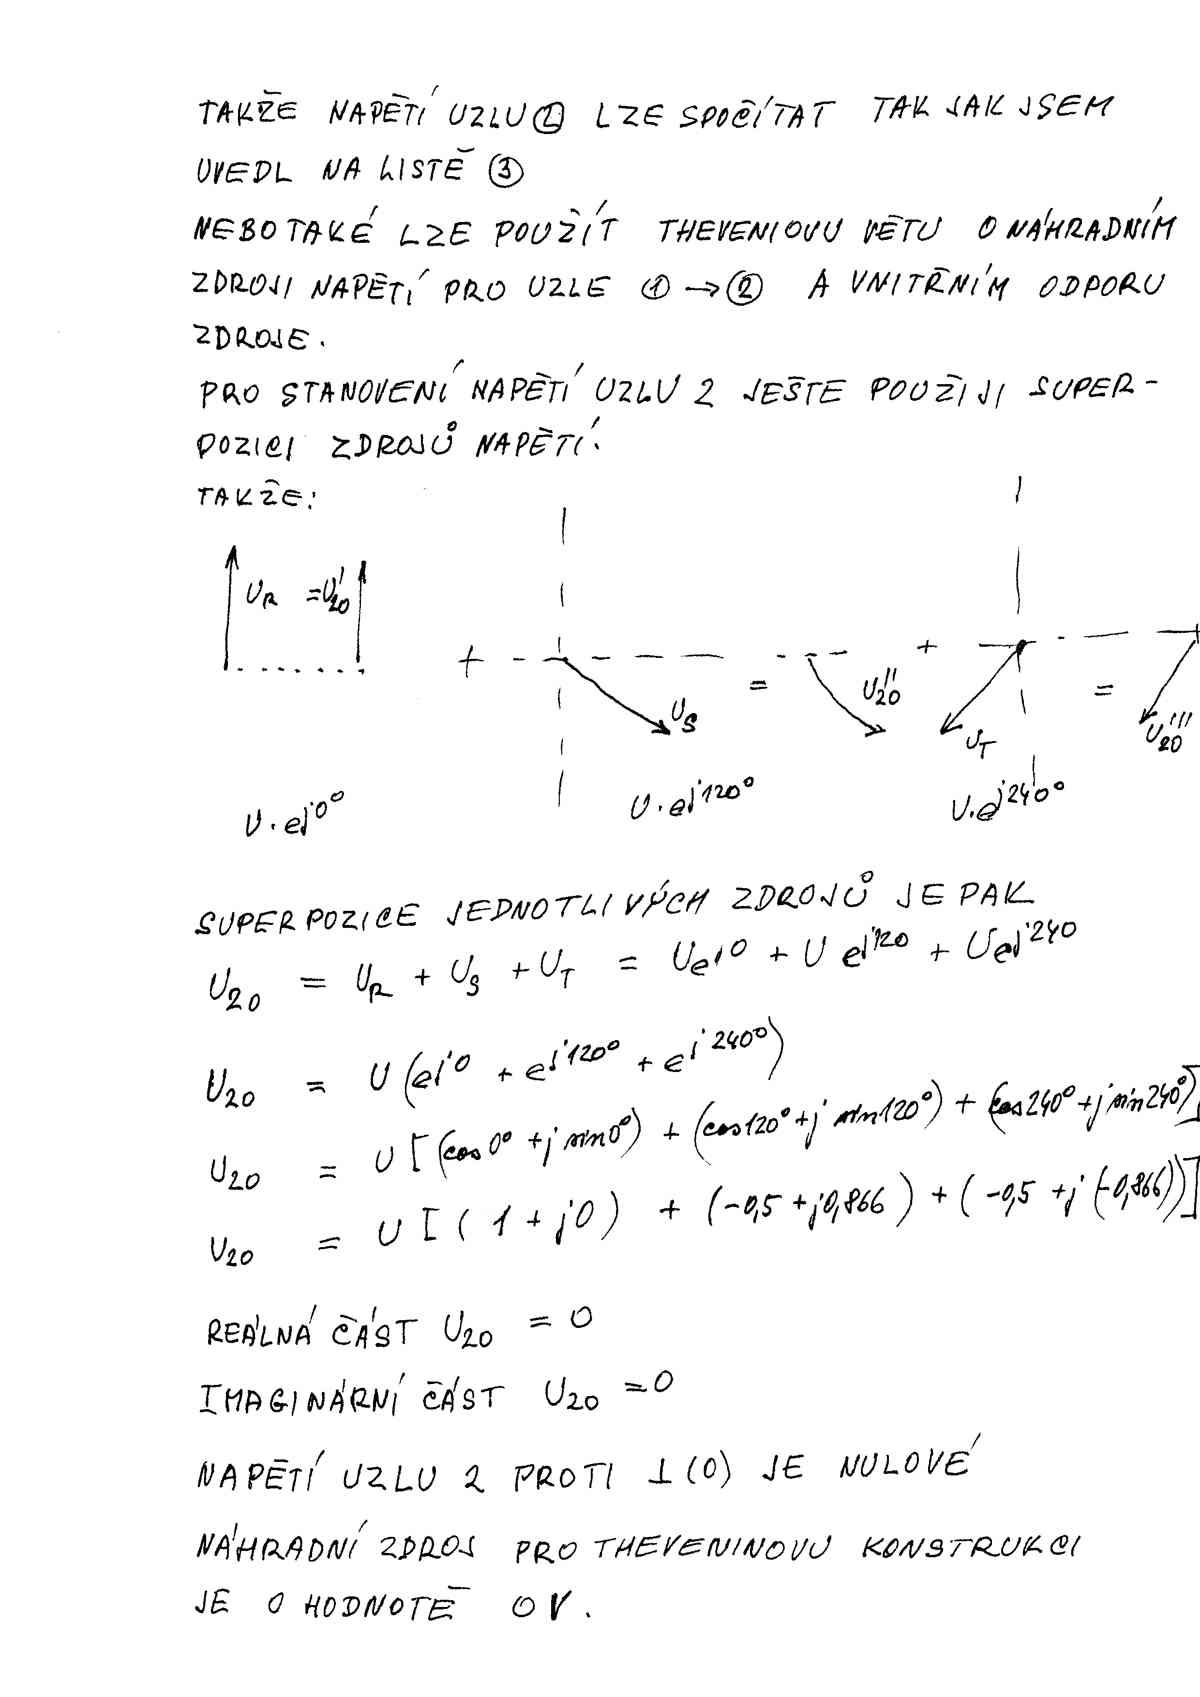 TAKŽE NAPĚTÍ UZLU ② LZE SPOČÍTAT TAK JAK JSEM
UVEDL NA LISTĚ ③
NEBO TAKÉ LZE POUŽÍT THEVENIOVU VĚTU O NÁHRADNÍM
ZDROJI NAPĚTÍ PRO UZLE ① → ② A VNITŘNÍM ODPORU
ZDROJE.
PRO STANOVENÍ NAPĚTÍ UZLU 2 JEŠTE POUŽIJI SUPER-
POZICI ZDROJŮ NAPĚTÍ.
TAKŽE:
U_R = U_20' + U_S = U_20'' + U_T = U_20'''
U·e^j0° U·e^j120° U·e^j240°
SUPERPOZICE JEDNOTLIVÝCH ZDROJŮ JE PAK
U_20 = U_R + U_S + U_T = Ue^j0 + Ue^j120 + Ue^j240
U_20 = U(e^j0 + e^j120° + e^j240°)
U_20 = U[(cos0° + j sin0°) + (cos120° + j sin120°) + (cos240° + j sin240°)]
U_20 = U[(1 + j0) + (-0,5 + j0,866) + (-0,5 + j(-0,866))]
REÁLNÁ ČÁST U_20 = 0
IMAGINÁRNÍ ČÁST U_20 = 0
NAPĚTÍ UZLU 2 PROTI ⊥(0) JE NULOVÉ
NÁHRADNÍ ZDROJ PRO THEVENINOVU KONSTRUKCI
JE O HODNOTĚ 0 V.